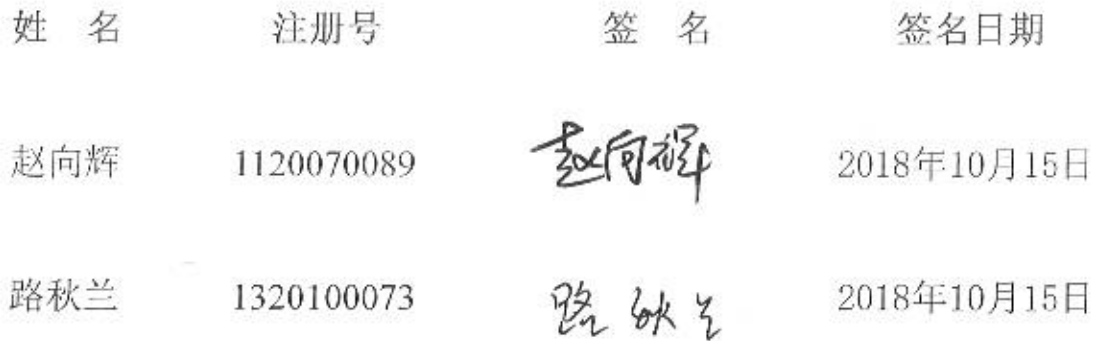 姓 名 注册号 签 名 签名日期
赵向辉 1120070089 赵向辉 2018年10月15日
路秋兰 1320100073 路秋兰 2018年10月15日